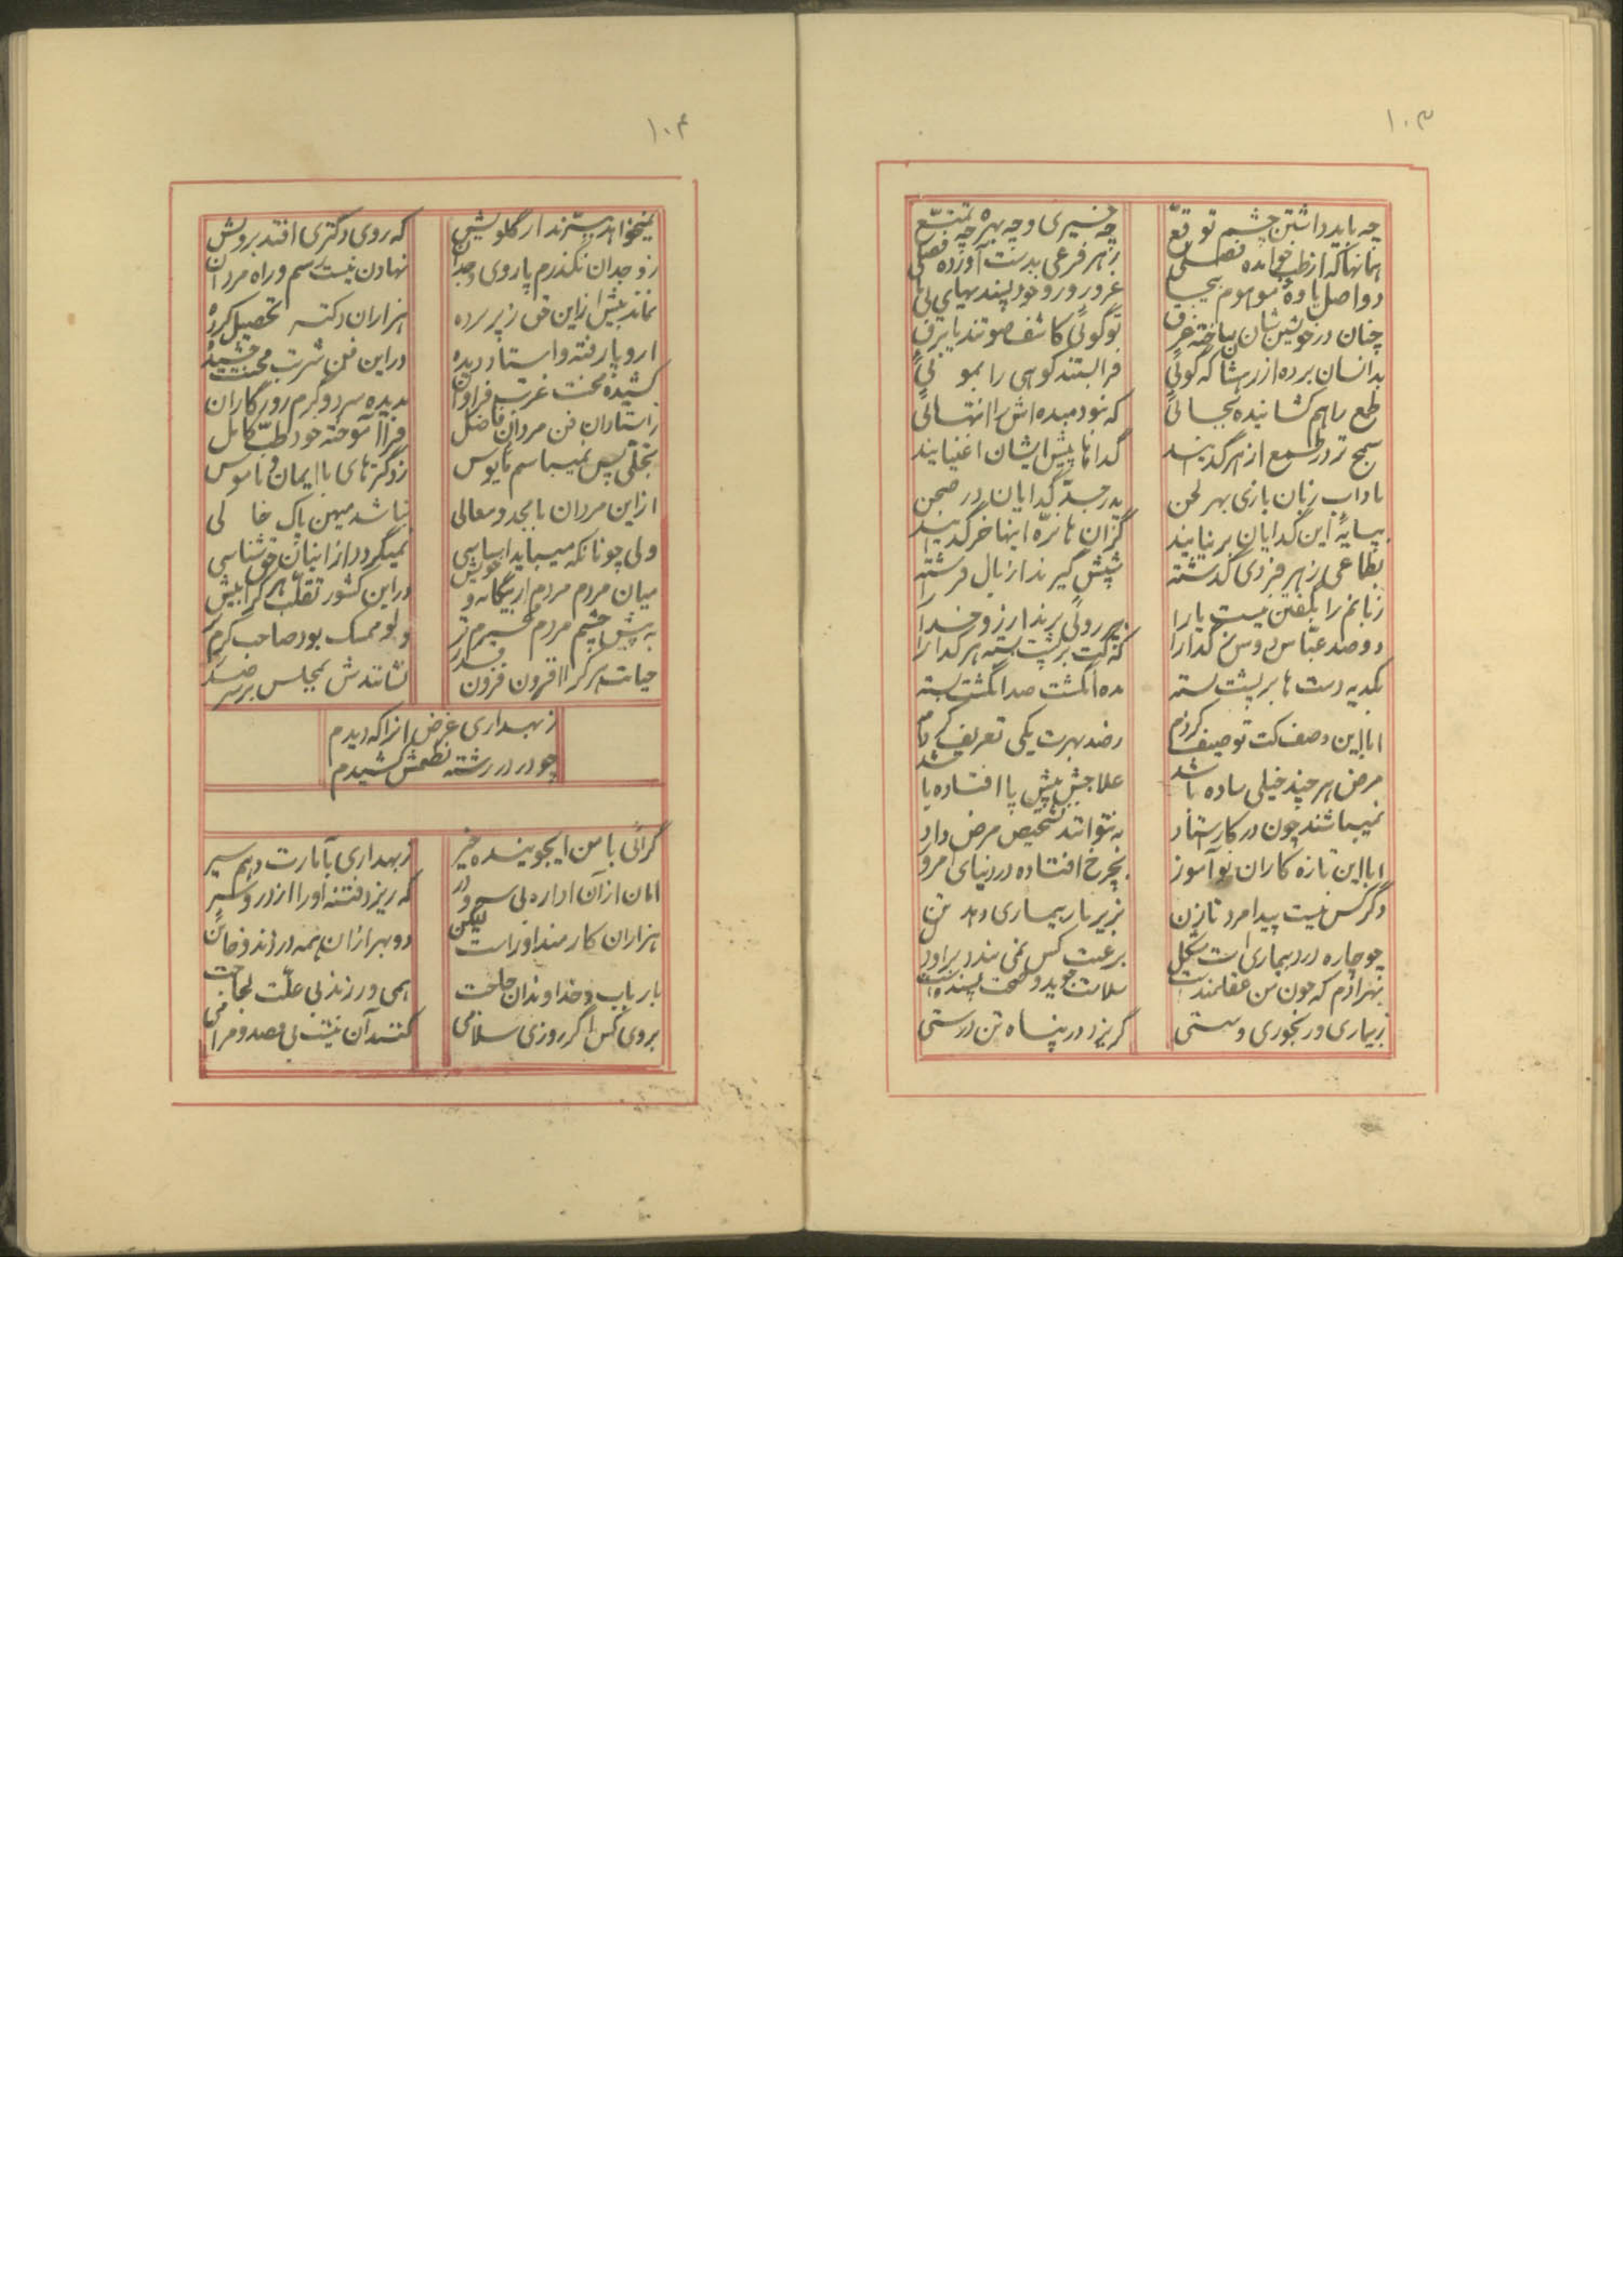 ۱۰۳
چه باید داشتن چشم توقع
چه خیری و چه بهره چه تمتع
همانها که از طب خوانده فصلی
ز هر فرعی بدست آورده اصلی
دو اصل یاوه موهوم بیجا
غرور و خود پسندیهای بی‌جا
چنان در خویشتن‌شان ساخته غرق
تو گوئی کاشف صوتند یا برق
بدانسان برده از رشا که گوئی
فرابستند کوهی را بموئی
طمع را هم کشانیده بجائی
که نبود مبده‌اش را انتهائی
سمج‌تر در طمع از هر گدایند
گداها پیش ایشان اغنیایند
باداب زبان بازی بهر لحن
بپایهٔ این گدایان بر نیایند
گران با نره اینها خر گدایند
ز هر فردی گذشته
شپش گیرند از بال فرشته
زبانم را بگفتن نیست یارا
دو صد عباس دوس گدا را
که کت بر پشت بسته هر گدا را
بگدیه دست‌ها بر پشت بسته
ده انگشت صد انگشت بسته
ابا این وصف کت توصیف کردم
ز صد بهرت یکی تعریف کردم
مرض هر چند خیلی ساده باشد
علاجش پیش پا افتاده باشد
نمیباشند چون در کار استاد
نتوانند تشخیص مرض داد
ابا این تازه کاران نوآموز
بچرخ افتاده در دنیای امروز
دگر کس نیست پیدا مرد تا زن
بزیر بار بیماری دهد تن
چو چاره درد بیماری است مشکل
برغبت کس نمی‌بندد بر او دل
بهر آدم که چون من عقلمند است
سلامت جوید و صحت پسند است
ز بیماری و رنجوری و سستی
گریزد در پناه تن درستی
۱۰۴
نمیخواهد بیفزند از گلویش
که روی دکتری افتد برویش
ز وجدان نگذرم پا روی وجدان
نهادن نیست رسم و راه مردان
نماند بیش از این حق زیر پرده
هزاران دکتر تحصیل کرده
اروپا رفته و استاد دیده
در این فن شربت محنت چشیده
کشیده محنت غربت فراوان
بدیده سرد و گرم روزگاران
ز استادان فن مردان فاضل
فرا آموخته خود طب کامل
بخلقی پس نمیباشم مایوس
ز دکترهای با ایمان و ناموس
از این مردان با مجد و معالی
نباشد میهن پاک خالی
ولی چونانکه میباید اساسی
نمیگردد از اینان حق شناسی
میان مردم مردم از بیگانه و خویش
در این کشور تقلب هر کرا بیش
به پیش چشم مردم محترم‌تر
ولو ممسک بود صاحب کرم‌تر
حیاتش هر که را افزون فزون قدر
نشانندش بمجلس بر سر صدر
ز بهداری غرض آنرا که دیدم
چو در در رشته نظمش کشیدم
گرائی با من ایجوینده خیر
ز بهداری بآمارت دهم سیر
امان از آن اداره بی سر و در
که ریزد فتنه او را از در و سر
هزاران کارمند او راست لیکن
دو بهر از آن همه دزدند و خائن
بار باب و خداوندان حاجت
همی ورزند بی علت لجاجت
بروی کس اگر روزی سلامی
کنند آن نیست بی قصد و مرامی